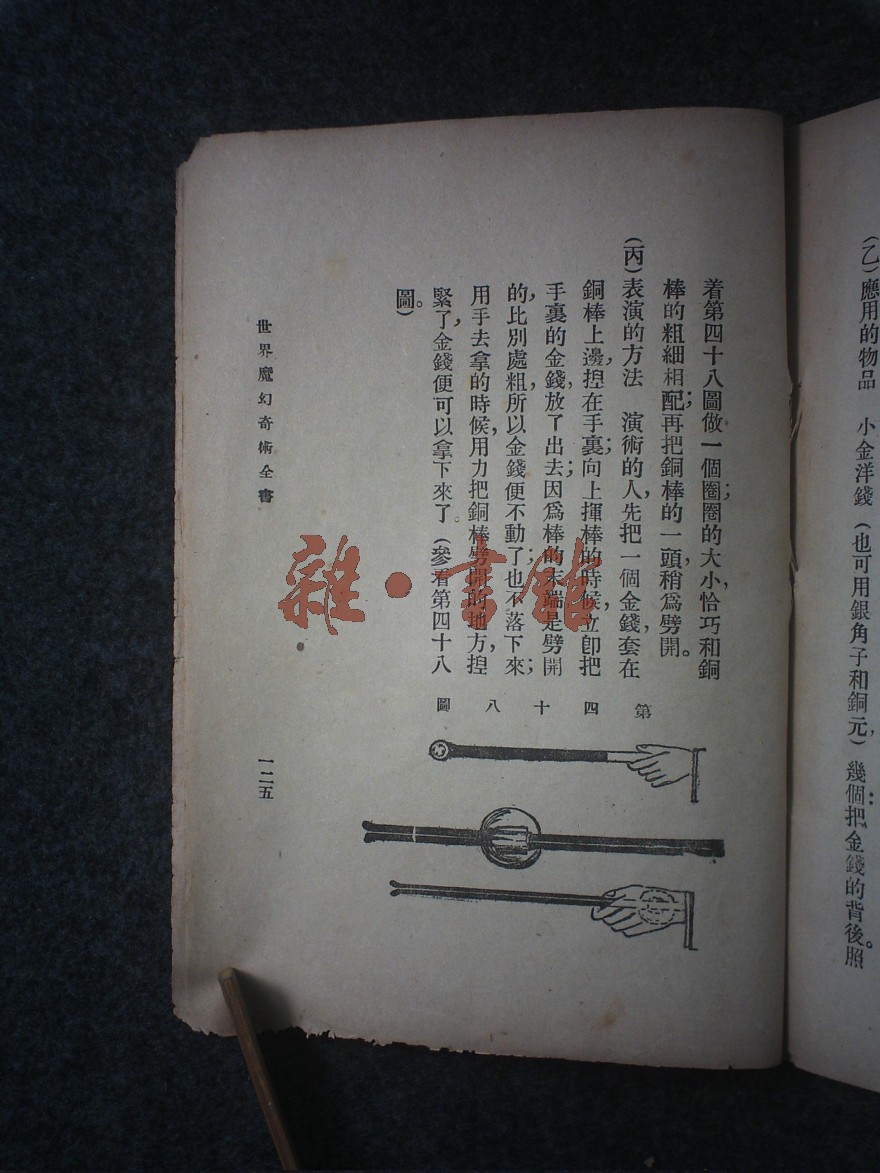 (乙)應用的物品　小金洋錢(也可用銀角子和銅元,)幾個:把金錢的背後。照
着第四十八圖做一個圈;圈的大小,恰巧和銅
棒的粗細相配;再把銅棒的一頭,稍爲劈開。
(丙)表演的方法　演術的人,先把一個金錢,套在
銅棒上邊,揑在手裏;向上揮棒的時候,立卽把
手裏的金錢,放了出去;因爲棒的末端是劈開
的,比別處粗,所以金錢便不動了;也不落下來;
用手去拿的時候,用力把銅棒劈開的地方,揑
緊了,金錢便可以拿下來了。(參看第四十八
圖。)
第四十八圖
世界魔幻奇術全書
一二五
雜·書館